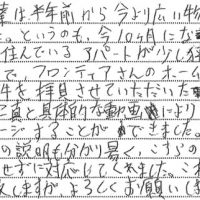 は半年前から今より広い物
た。というのも、今10ヶ月にな
住んでいるアパートが少し狭
で、フロンティアさんのホーム
件を拝見させていただいた
写真と具体的な動画により
ージすることができました。
の説明も分かり易く、こちらの
せずに対応してくれました。これ
しますが、よろしくお願いしま